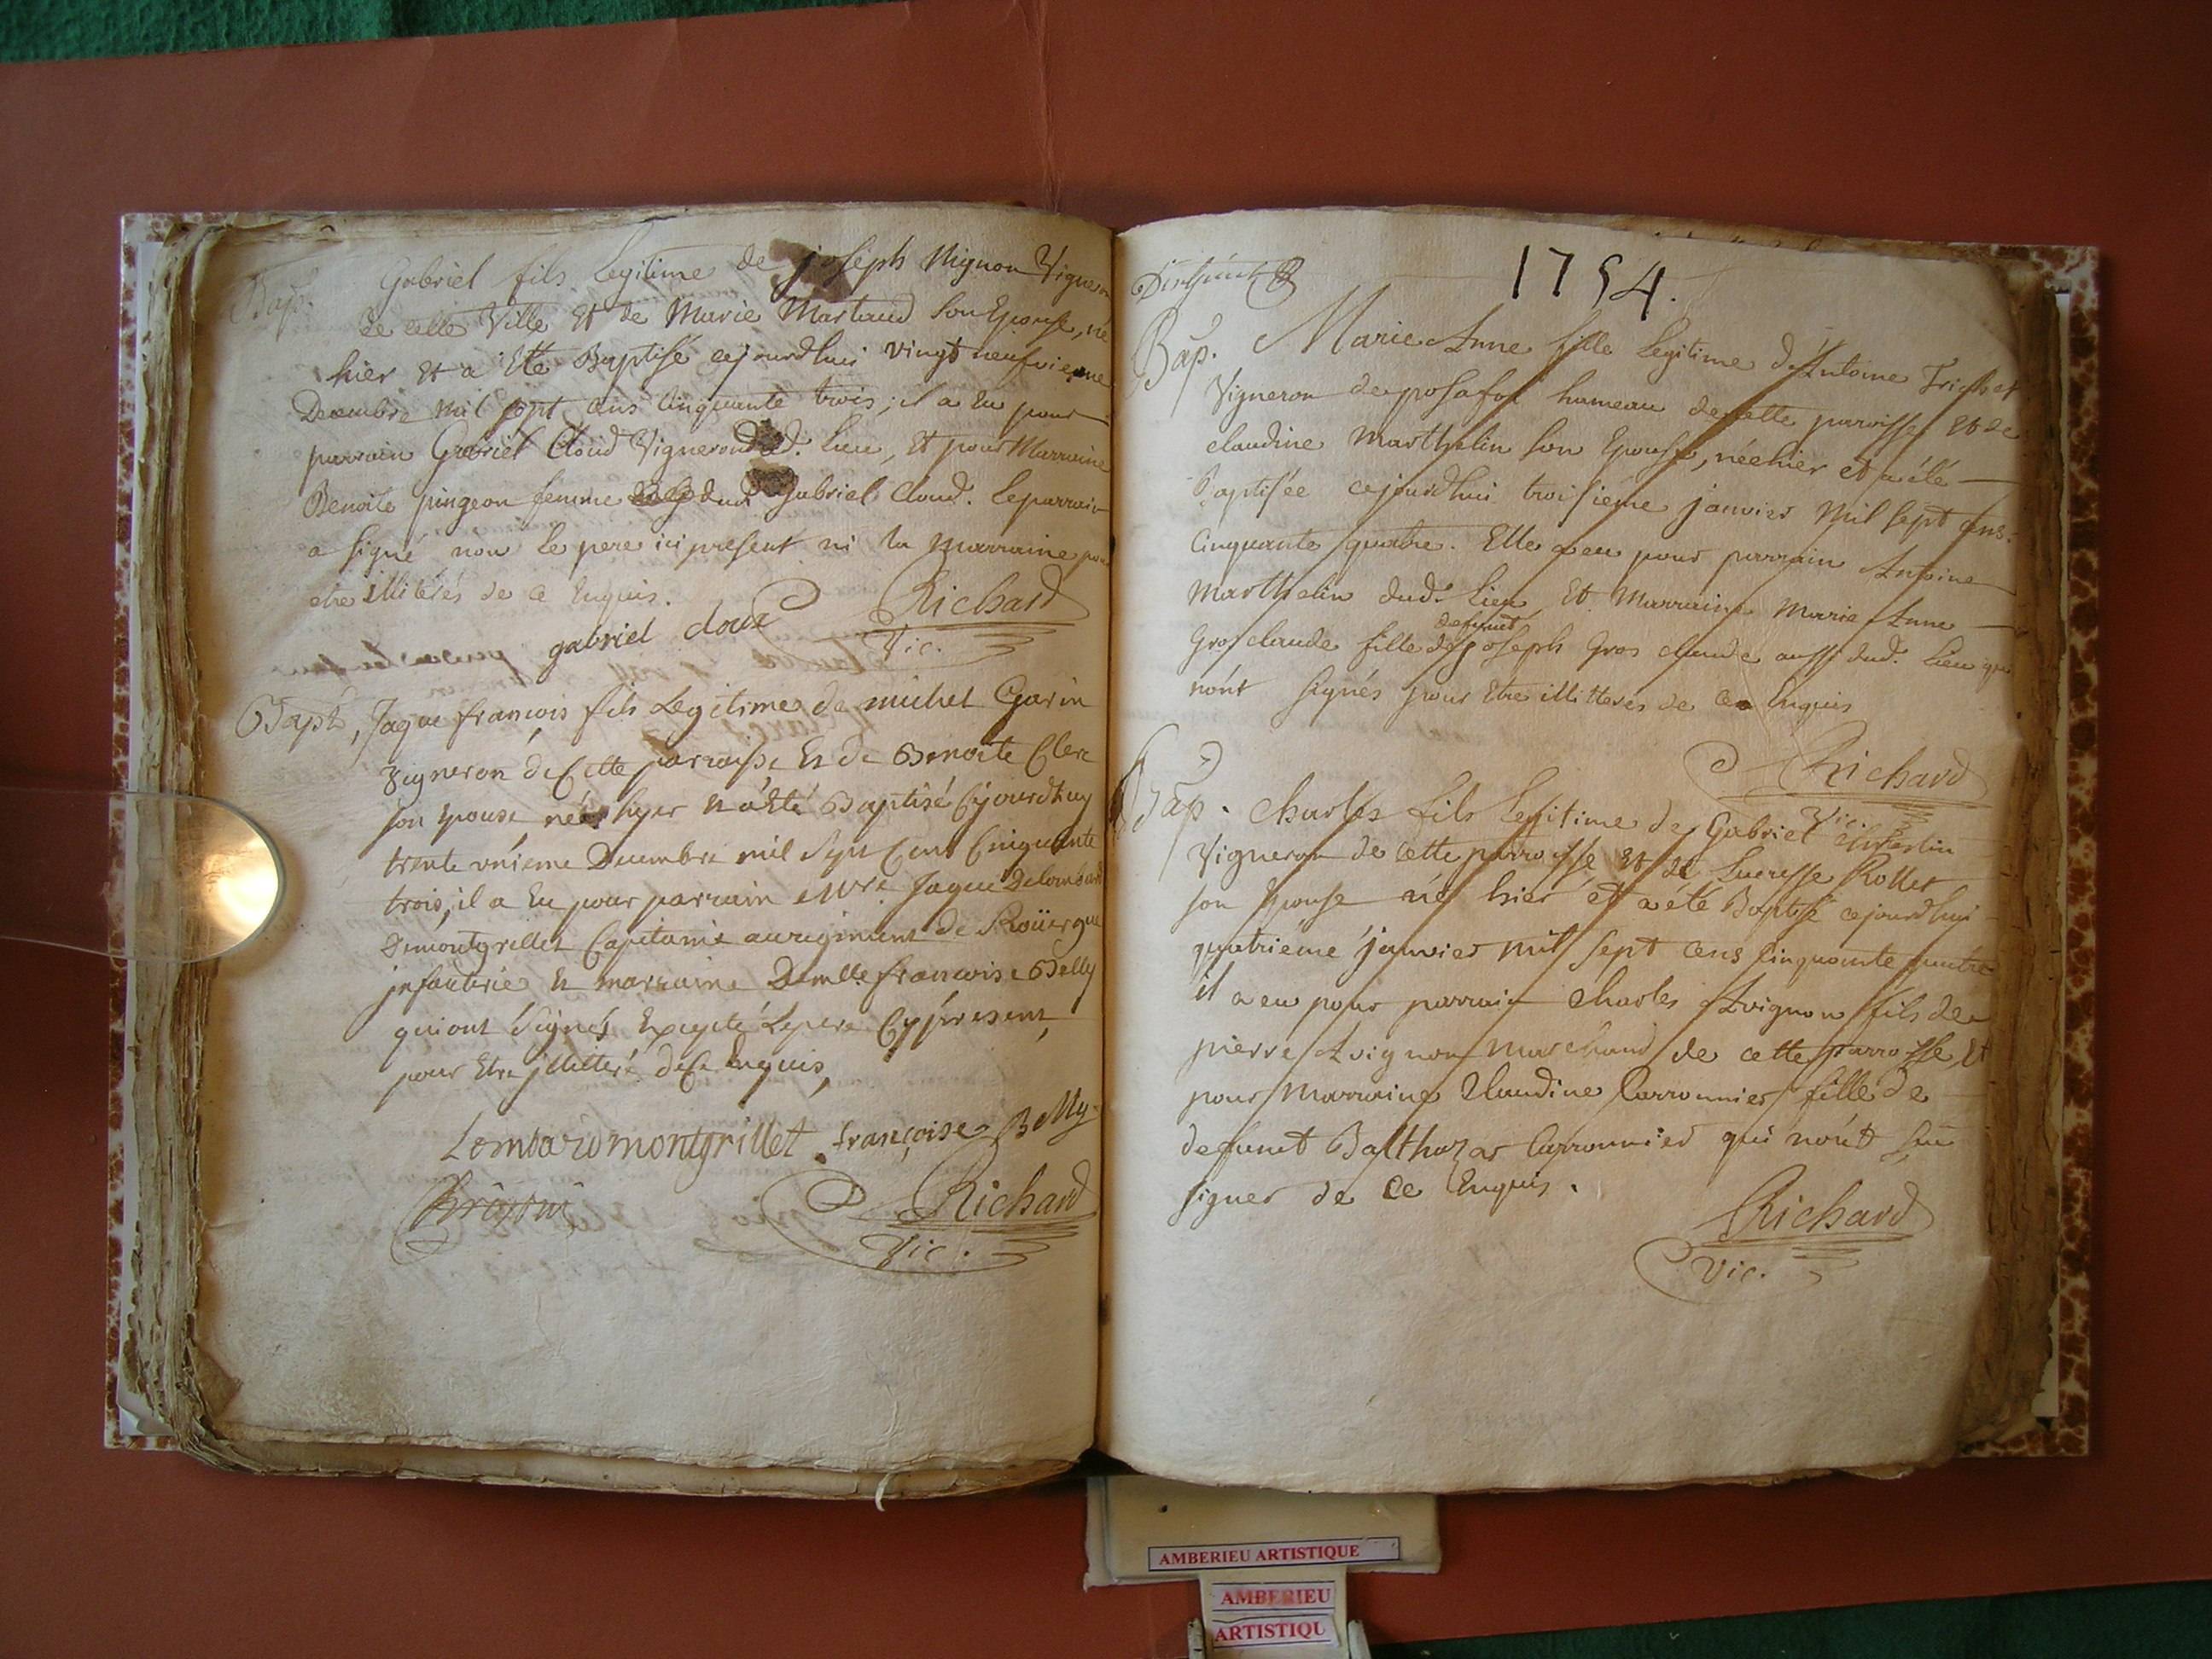 Bap.
Gabriel fils Legitime de joseph Mignon Vigneron
de cette Ville et de Marie Martaud son Epouse, né
hier et a Eté Baptisé cejourdhui vingt neufvieme
Decembre mil sept cens cinquante trois; il a Eu pour
parrain Gabriel Cloud Vigneron dud. Lieu, et pour Marraine
Benoite pingeon femme dud Gabriel Cloud. Le parrain
a signé non le pere ici present ni la marraine pour
etre illiterés de ce Enquis.
gabriel cloud Richard
Vic.
Bapt, Jaque françois fils Legitime de michel Garin
vigneron de Cette parroisse Et de Benoite Clerc
son epouse né hyer Et a Eté Baptisé Cejourdhuy
trente unieme Decembre mil Sept Cent Cinquante
trois, il a Eu pour parrain Mre. Jaque Delombard
Demontgrillet Capitaine au regiment de Roüergue
jnfanterie et marraine Demlle. francoise Belly
qui ont Signés Excepté Le pere Cy present,
pour Etre jllitteré de Ce Enquis,
Lombard montgrillet françoise Belly
Richard
Vic.
1754.
Bap. Marie Anne fille Legitime d'Antoine Trichet
Vigneron de posafol hameau de cette parroisse et de
claudine Marthelin son Epouse, née hier et a été
Baptisée cejourdhui troisieme janvier mil sept cens
Cinquante quatre. Elle a eu pour parrain Antoine
Marthelin dud. Lieu Et Marraine Marie Anne
Grosclaude fille de defunct joseph Gros claude aussi dud. Lieu qui
n'ont signés pour Etre illitterés de ce Enquis
Richard
Vic.
Bap. Charles fils Legitime de Gabriel
Vigneron de cette parroisse et de Lucresse Rollet
son Epouse né hier et a été Baptisé cejourdhui
quatrieme janvier mil sept cens cinquante quatre
il a eu pour parrain Charles Avignon fils de
pierre Avignon Marchand de cette parroisse, Et
pour Marraine Claudine Carronnier fille de
defunct Balthazar Carronnier qui n'ont sçu
signer de ce Enquis.
Richard
Vic.
AMBERIEU ARTISTIQUE
AMBERIEU
ARTISTIQU